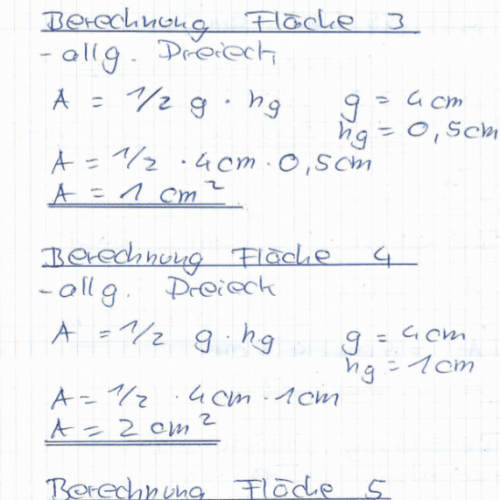 Berechnung Fläche 3
- allg. Dreieck
A = 1/2 g · hg g = 4cm
hg = 0,5cm
A = 1/2 · 4cm · 0,5cm
A = 1 cm²
Berechnung Fläche 4
- allg. Dreieck
A = 1/2 g · hg g = 4cm
hg = 1cm
A = 1/2 · 4cm · 1cm
A = 2 cm²
Berechnung Fläche 5